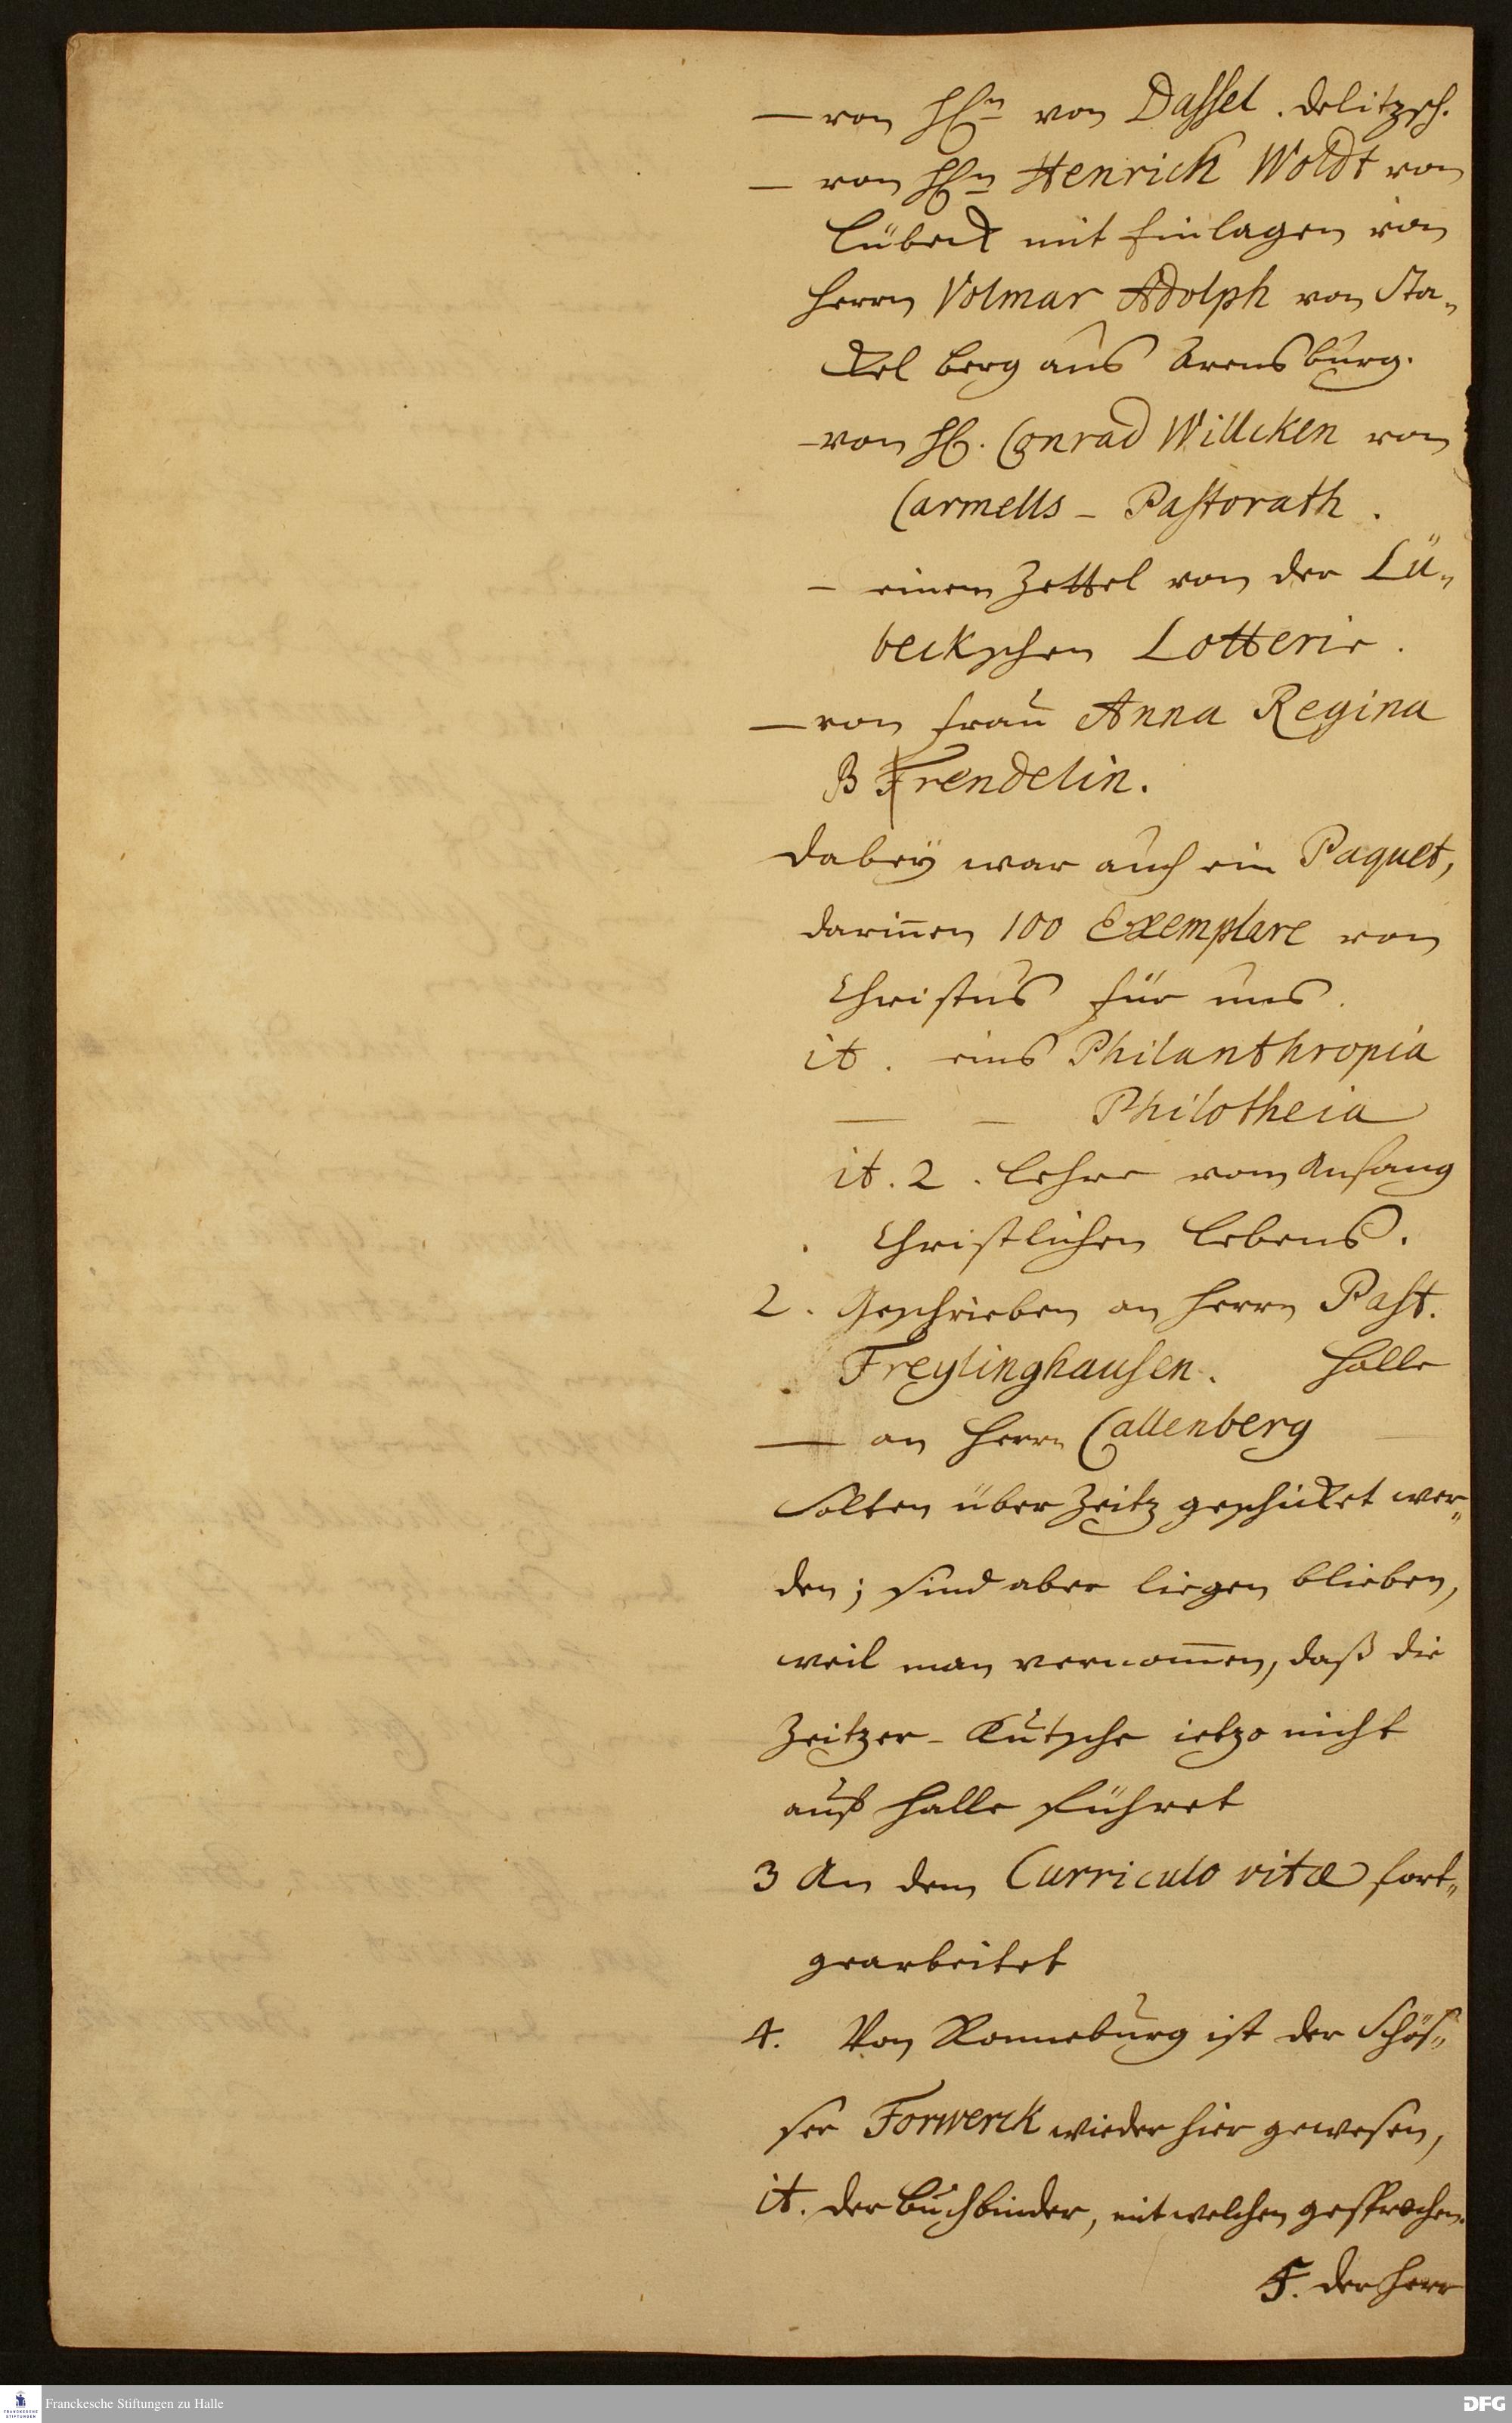 — von HEn von Dassel. Delitzsch.
— von HEn Henrich Woldt von
Lübeck mit Einlagen von
Herrn Volmar Adolph von Sta„
ckel berg aus Arensburg.
– von HE. Conrad Willcken von
Carmells – Pastorath.
– einen Zettel von der Lü„
beckschen Lotterie.
— von Frau Anna Regina
Frendelin.
Dabey war auch ein Paquet,
darinnen 100 Exemplare von
Christus für uns.
it. eins Philanthropia
— – Philotheia
it. 2. Lehre vom Anfang
Christlichen Lebens.
2. Geschrieben an Herrn Past.
Freylinghausen. Halle
— an Herrn Callenberg —
Solten über Zeitz geschicket wer„
den; sind aber liegen blieben,
weil man vernommen, daß die
Zeitzer-Kutsche ietzo nicht
auf Halle führet
3 An dem Curriculo vitæ fort„
gearbeitet
4. Von Ronneburg ist der Schös„
ser Forwerck wieder hier gewesen,
it. der Buchbinder, mit welchen gesprochen.
5. der Herr
Franckesche Stiftungen zu Halle
DFG